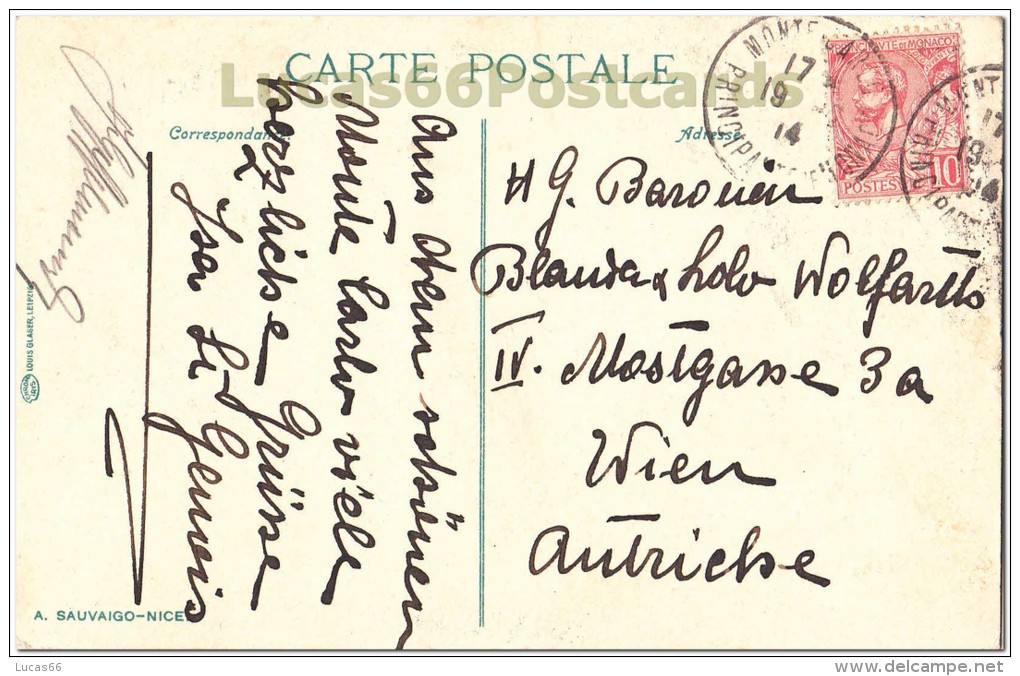 CARTE POSTALE
Lucas66Postcards
Correspondance
Adresse
Aus dem schönen
Monte Carlo viele
herzliche Grüsse
Isa St. Genois
H G. Baronin
Blanda & Lolo Wolfarth
IV. Mostgasse 3a
Wien
Autriche
MONTE-CARLO
17
19
14
PRINCIPAUTÉ DE MONACO
POSTES
10
17
19
14
LOUIS GLASER, LEIPZIG
A. SAUVAIGO-NICE
Lucas66
www.delcampe.net